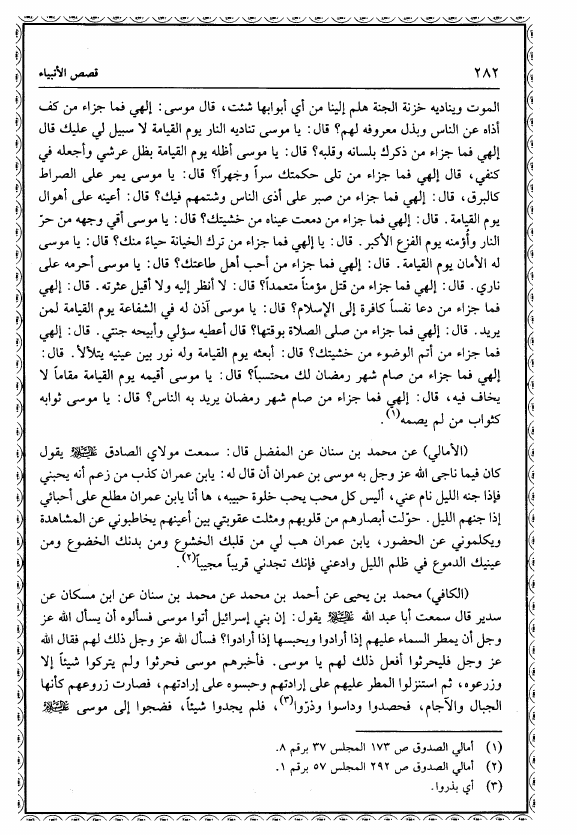 ٢٨٢
قصص الأنبياء
الموت ويناديه خزنة الجنة هلم إلينا من أي أبوابها شئت، قال موسى: إلهي فما جزاء من كف
أذاه عن الناس وبذل معروفه لهم؟ قال: يا موسى تناديه النار يوم القيامة لا سبيل لي عليك قال
إلهي فما جزاء من ذكرك بلسانه وقلبه؟ قال: يا موسى أظله يوم القيامة بظل عرشي وأجعله في
كنفي، قال إلهي فما جزاء من تلى حكمتك سراً وجَهراً؟ قال: يا موسى يمر على الصراط
كالبرق، قال: إلهي فما جزاء من صبر على أذى الناس وشتمهم فيك؟ قال: أعينه على أهوال
يوم القيامة. قال: إلهي فما جزاء من دمعت عيناه من خشيتك؟ قال: يا موسى أقي وجهه من حرّ
النار وأُؤمنه يوم الفزع الأكبر. قال: يا إلهي فما جزاء من ترك الخيانة حياءً منك؟ قال: يا موسى
له الأمان يوم القيامة. قال: إلهي فما جزاء من أحب أهل طاعتك؟ قال: يا موسى أحرمه على
ناري. قال: إلهي فما جزاء من قتل مؤمناً متعمداً؟ قال: لا أنظر إليه ولا أقيل عثرته. قال: إلهي
فما جزاء من دعا نفساً كافرة إلى الإسلام؟ قال: يا موسى آذن له في الشفاعة يوم القيامة لمن
يريد. قال: إلهي فما جزاء من صلى الصلاة بوقتها؟ قال أعطيه سؤلي وأبيحه جنتي. قال: إلهي
فما جزاء من أتم الوضوء من خشيتك؟ قال: أبعثه يوم القيامة وله نور بين عينيه يتلألأ. قال:
إلهي فما جزاء من صام شهر رمضان لك محتسباً؟ قال: يا موسى أقيمه يوم القيامة مقاماً لا
يخاف فيه، قال: إلهي فما جزاء من صام شهر رمضان يريد به الناس؟ قال: يا موسى ثوابه
كثواب من لم يصمه(١).
(الأمالي) عن محمد بن سنان عن المفضل قال: سمعت مولاي الصادق عليه السلام يقول
كان فيما ناجى الله عز وجل به موسى بن عمران أن قال له: يابن عمران كذب من زعم أنه يحبني
فإذا جنه الليل نام عني، أليس كل محب يحب خلوة حبيبه، ها أنا يابن عمران مطلع على أحبائي
إذا جنهم الليل. حوّلت أبصارهم من قلوبهم ومثلت عقوبتي بين أعينهم يخاطبوني عن المشاهدة
ويكلموني عن الحضور، يابن عمران هب لي من قلبك الخشوع ومن بدنك الخضوع ومن
عينيك الدموع في ظلم الليل وادعني فإنك تجدني قريباً مجيباً(٢).
(الكافي) محمد بن يحيى عن أحمد بن محمد عن محمد بن سنان عن ابن مسكان عن
سدير قال سمعت أبا عبد الله عليه السلام يقول: إن بني إسرائيل أتوا موسى فسألوه أن يسأل الله عز
وجل أن يمطر السماء عليهم إذا أرادوا ويحبسها إذا أرادوا؟ فسأل الله عز وجل ذلك لهم فقال الله
عز وجل فليحرثوا أفعل ذلك لهم يا موسى. فأخبرهم موسى فحرثوا ولم يتركوا شيئاً إلا
وزرعوه، ثم استنزلوا المطر عليهم على إرادتهم وحبسوه على إرادتهم، فصارت زروعهم كأنها
الجبال والآجام، فحصدوا وداسوا وذرّوا(٣)، فلم يجدوا شيئاً، فضجوا إلى موسى عليه السلام
(١) أمالي الصدوق ص ١٧٣ المجلس ٣٧ برقم ٨.
(٢) أمالي الصدوق ص ٢٩٢ المجلس ٥٧ برقم ١.
(٣) أي بذروا.